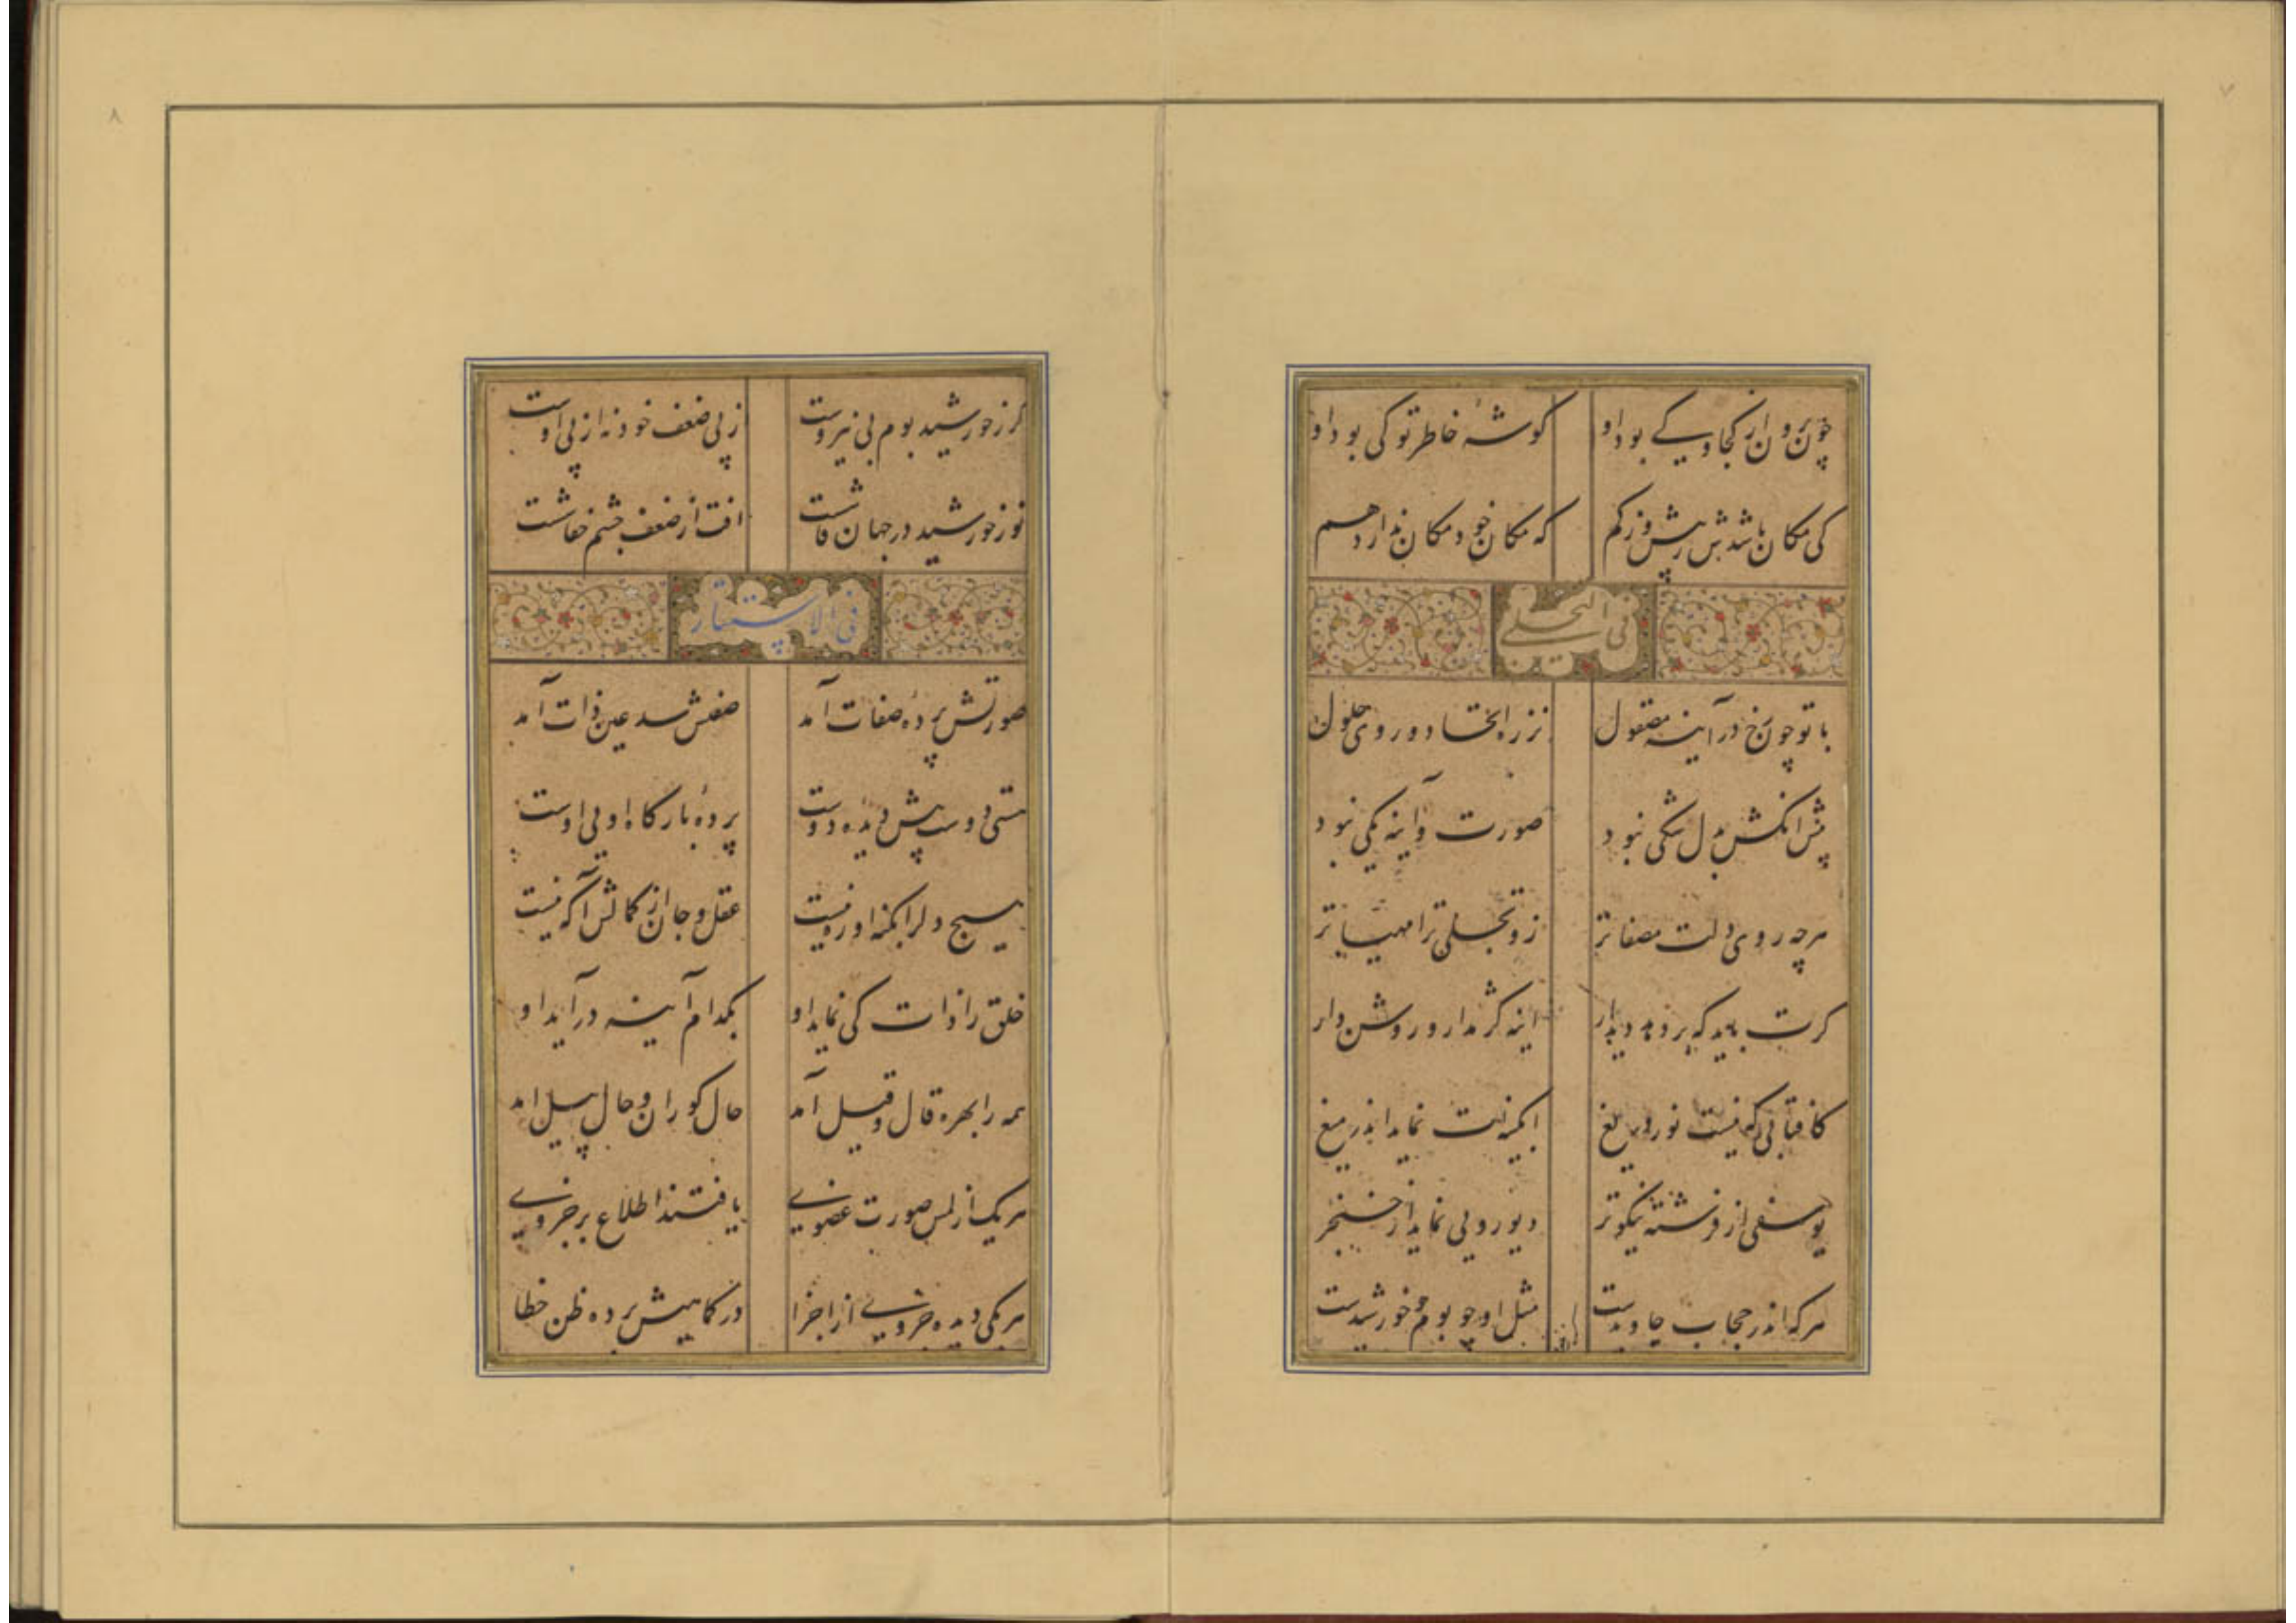 ۷
چون برون از کجا و کی بود او گوشهٔ خاطر تو کی بود او
کی مکان باشدش ز بیش و ز کم که مکان خود مکان ندارد هم
فی التجلی
با تو چون رخ در آینه مصقول نز ره اتحاد و روی حلول
پیش آنکش بدل شکی نبود صورت و آینه یکی نبود
هرچه روی دلت مصفاتر زو تجلی ترا مهیاتر
گرت باید که بر دهد دیدار اینه کژ مدار و روشن دار
کافتابی که نیست نور دریغ ابگینت نماید اندر میغ
یوسفی از فرشته نیکوتر دیو رویی نماید از خنجر
هرکه اندر حجاب جاویدست مثل او چو بوم و خورشیدست
۸
گر ز خورشید بوم بی نیروست از پی ضعف خود نه از پی اوست
نور خورشید در جهان فاشست افت از ضعف چشم خفاشست
فی الاستتار
صورتش پردهٔ صفات آمد صفتش سد عین ذات آمد
هستی دوست پیش دیده دوست پردهٔ بارگاه اویی اوست
هیچ دل را بکنه او ره نیست عقل و جان از کمالش آگه نیست
خلق را ذات کی نماید او بکدام آینه درآید او
همه را بهره قال و قیل آمد حال کوران و حال پیل آمد
هر یک از لمس صورت عضوی یافتند اطلاع بر جزوی
هر یکی دیده جزوی از اجزا در کماهیش برده ظن خطا